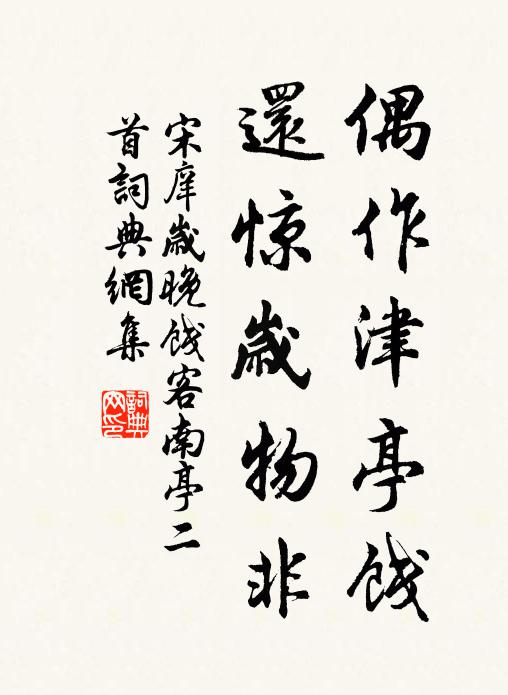 偶作津亭餞
還惊歲物非
宋庠歲晚餞客南亭二
首詞典網集
詞典網印